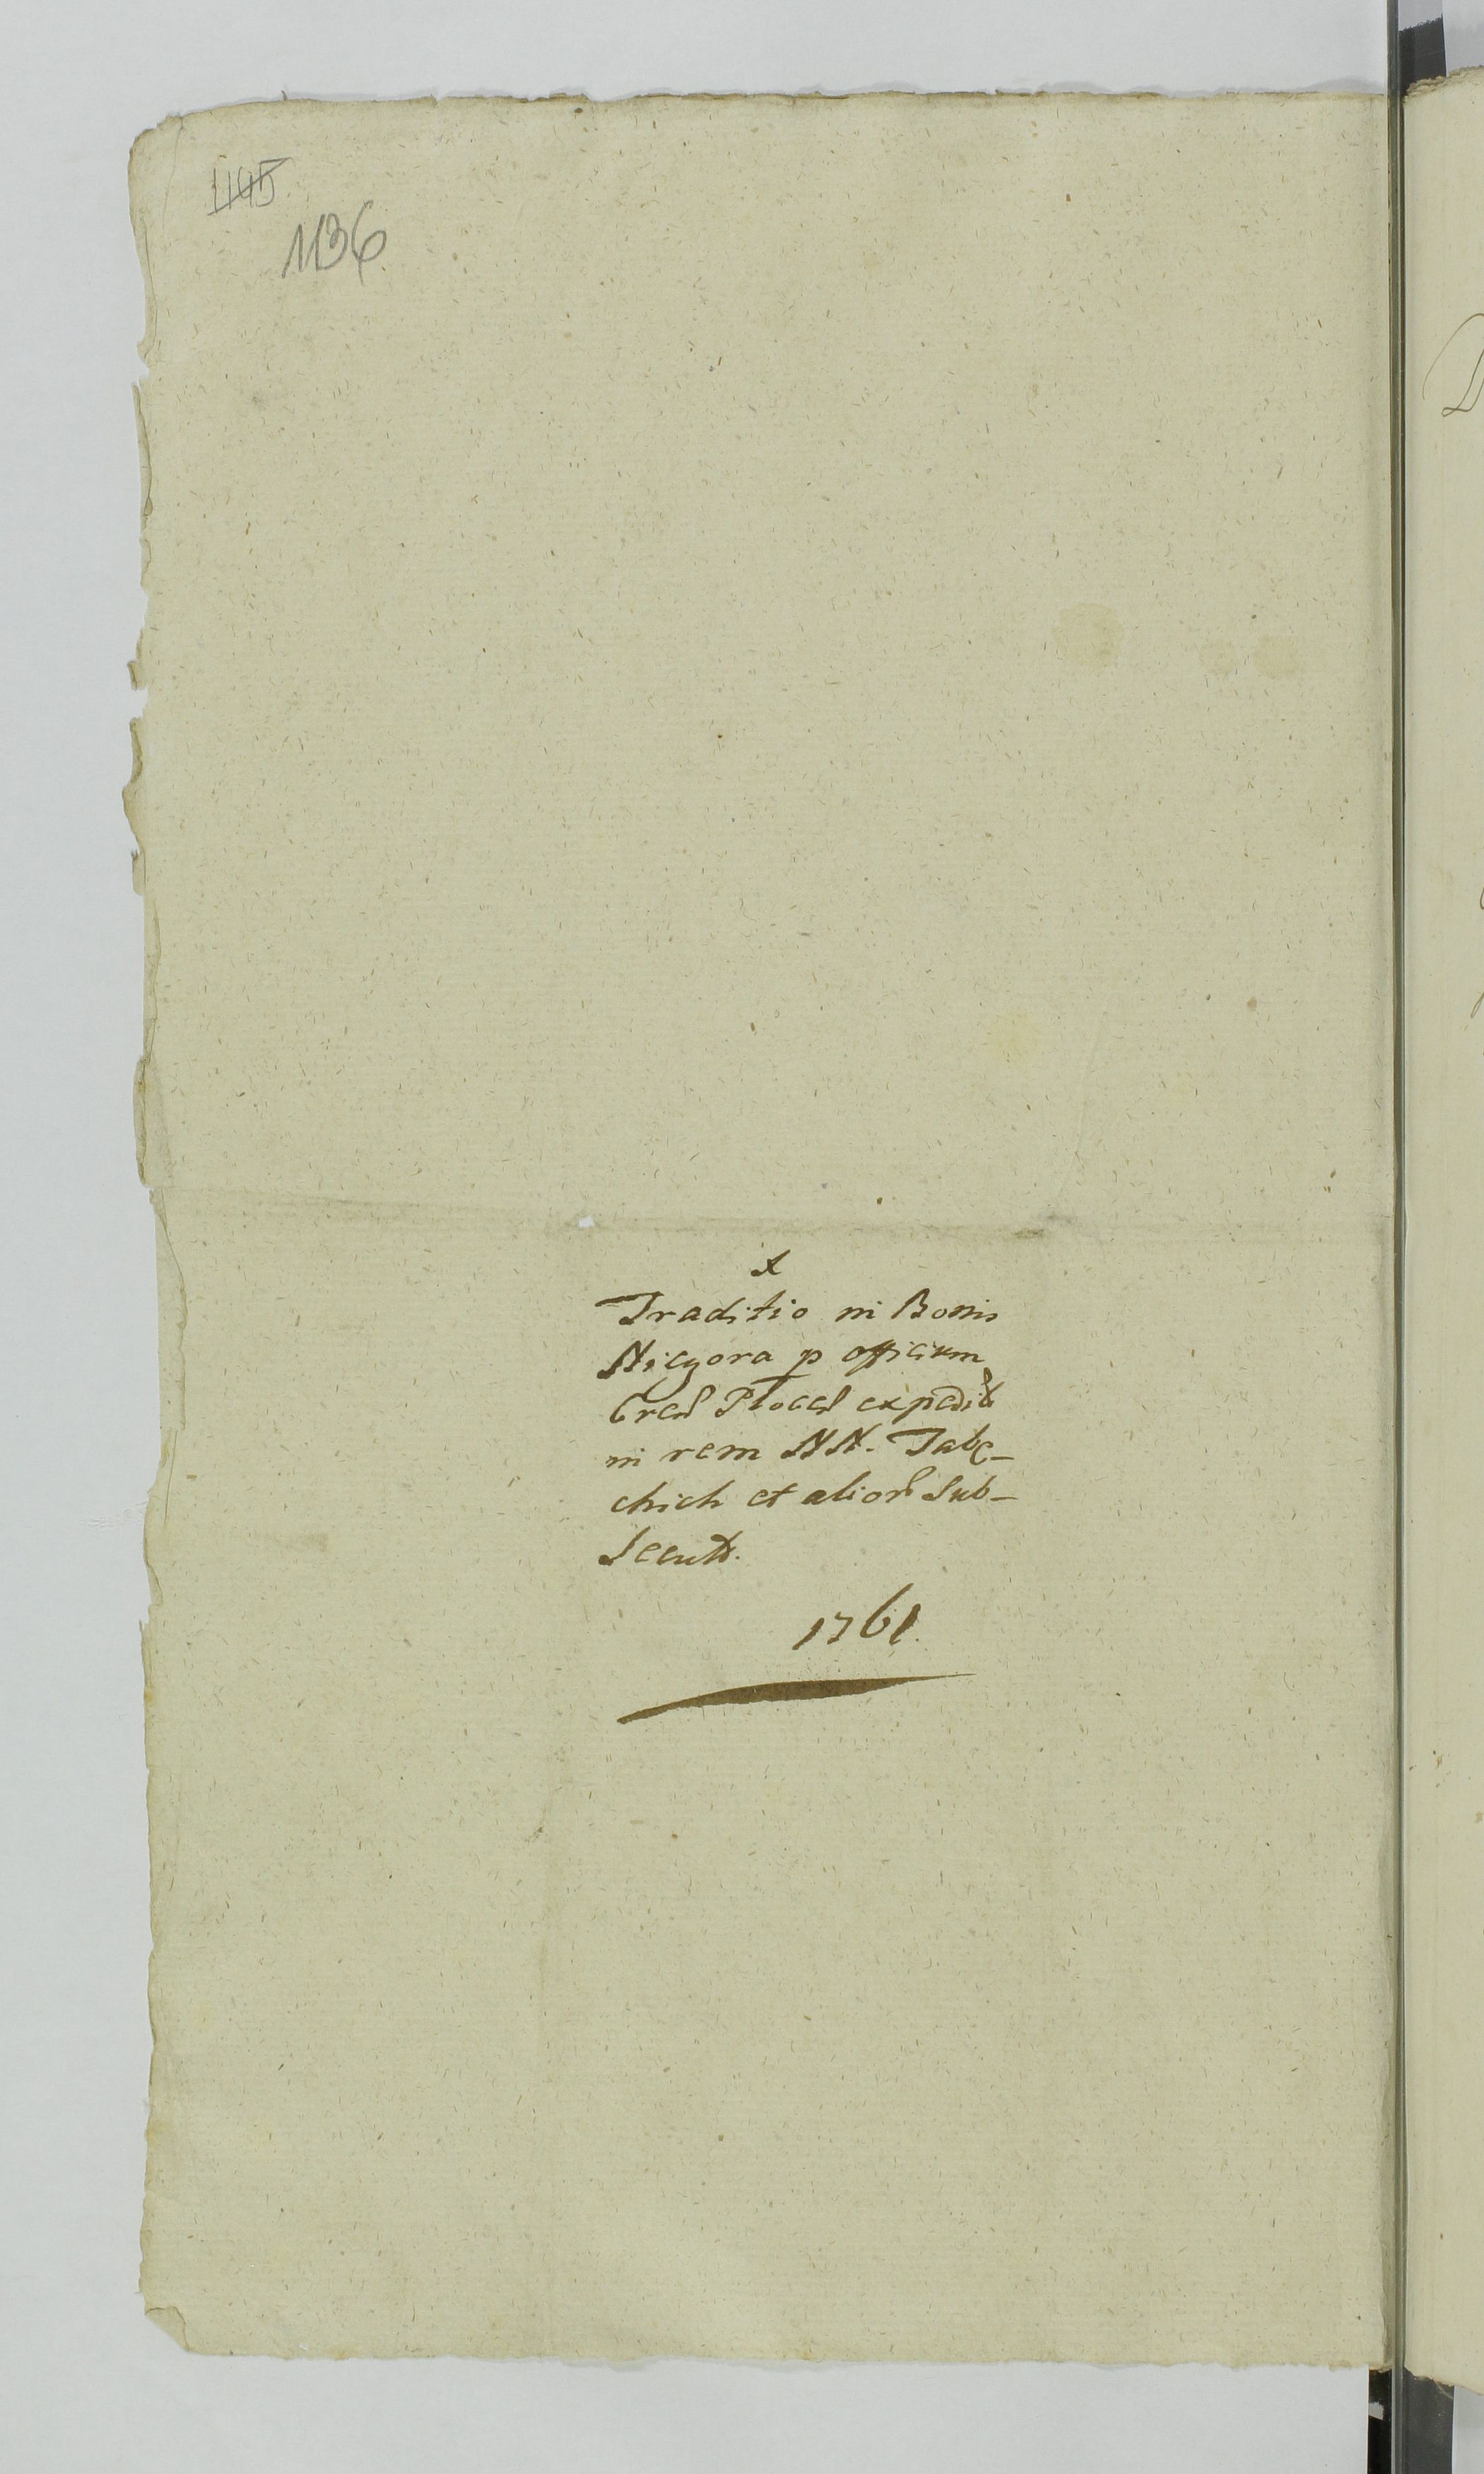 1136
Traditio in Bonis
Nicgora p officium
Cred Plocen expedit
in rem NN. Tabę-
chich et alior Sub-
secuta.
1761